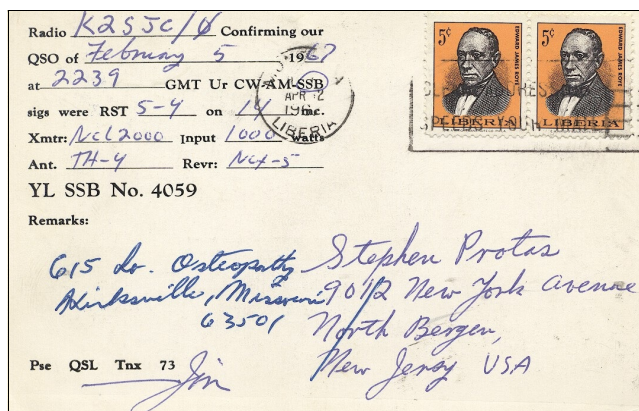 Radio K2SJC/Ø Confirming our
QSO of February 5 1967
at 2239 GMT Ur CW-AM-SSB
sigs were RST 5-9 on 14 mc.
Xmtr: NCL2000 Input 1000 watts
Ant. TH-4 Revr: NCX-5
YL SSB No. 4059
Remarks:
615 So. Osteopathy
Kirksville, Missouri
63501
Pse QSL Tnx 73
Jim
APR 2
LIBERIA
5¢
EDWARD JAMES ROYE
LIBERIA
5¢
EDWARD JAMES ROYE
LIBERIA
Stephen Protas
901/2 New York Avenue
North Bergen,
New Jersy USA